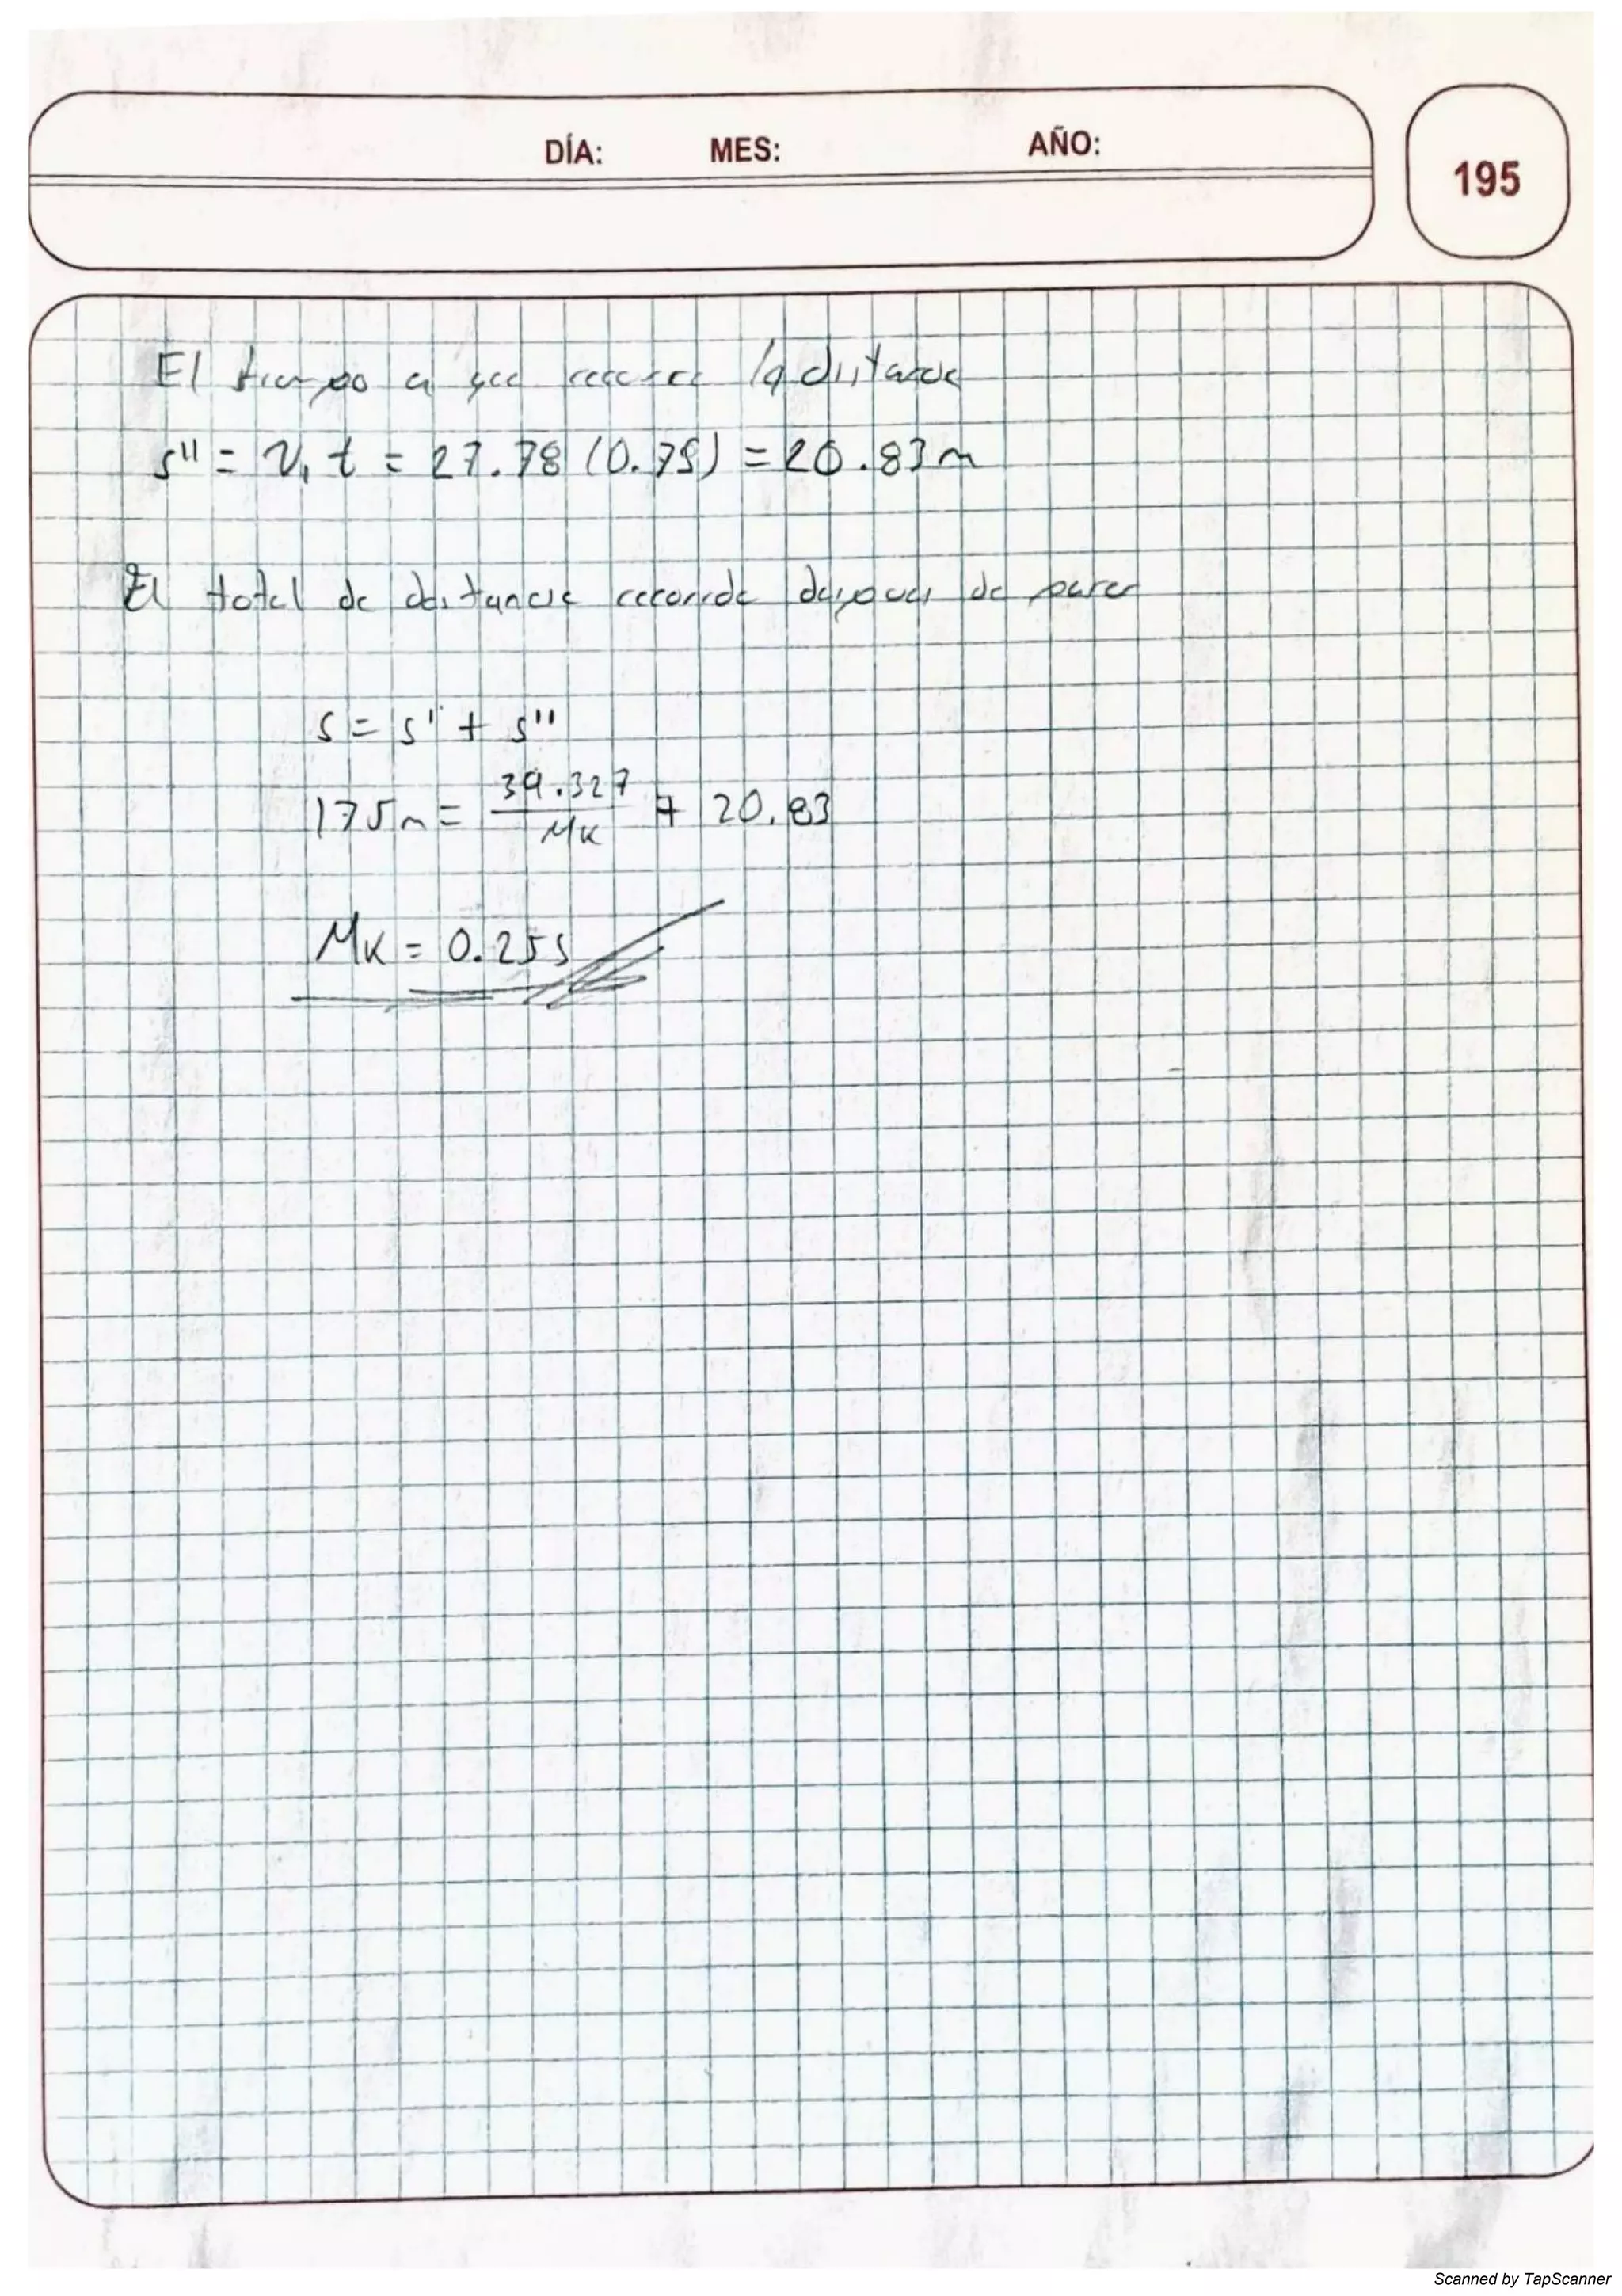 DÍA: MES: AÑO:
195
El tiempo a que recorre la distancia
s'' = v₁ t = 27.78 (0.75) = 20.83 m
El total de distancia recorrida despues de parar
s = s' + s''
175 m = 39.327 / Mk + 20.83
Mk = 0.255
Scanned by TapScanner